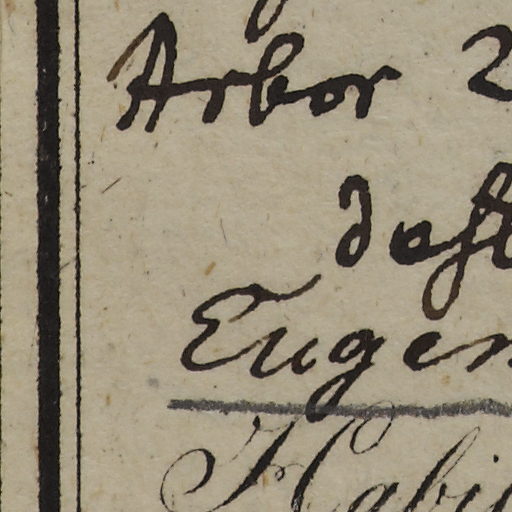 Arbor 2
Eugen
Habi